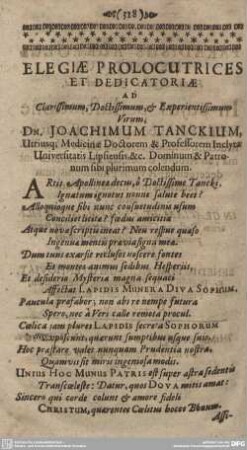 (318)
ELEGIÆ PROLOCUTRICES
ET DEDICATORIÆ
AD
Clarissimum, Doctissimum, & Experientissimum
Virum,
DN. JOACHIMUM TANCKIUM,
Utriusq; Medicinæ Doctorem & Professorem Inclytæ
Universitatis Lipsiensis &c. Dominum & Patro-
num sibi plurimum colendum.
ARtis Apollineæ decus, ô Doctissime Tancki,
Ignatum ignotus nonne salute beet?
Conciliet licite? fœdus amicitiæ
Atque nova scripti ineat? Nem respuo quaso
Ingenua mentis prævia signa meæ.
Dum tuus exarsit reclusos noscere fontes
Et montes animus sedibus Hesperiis,
Et desiderio Mysteria magna sequato
Affectat LAPIDIS MUNERA DIVA SOPHUM.
Paucula præfabor, non abs re nempe futura
Spero, nec à Veri calle remota procul.
Cælica jam plures LAPIDIS secreta SOPHORUM
exposuere, quarunt sumptibus usque suis.
Hoc præstare vales nunquam Prudentia nostra,
Quamvis sit miris ingeniosa modis.
UNIUS HOC MUNUS PATRIS est super astra sedentis
Transcœleste: Datur, quos DOVA mitis amat:
Sincero qui corde colunt & amore fideli
CHRISTUM, quarentes Cælitus hocce